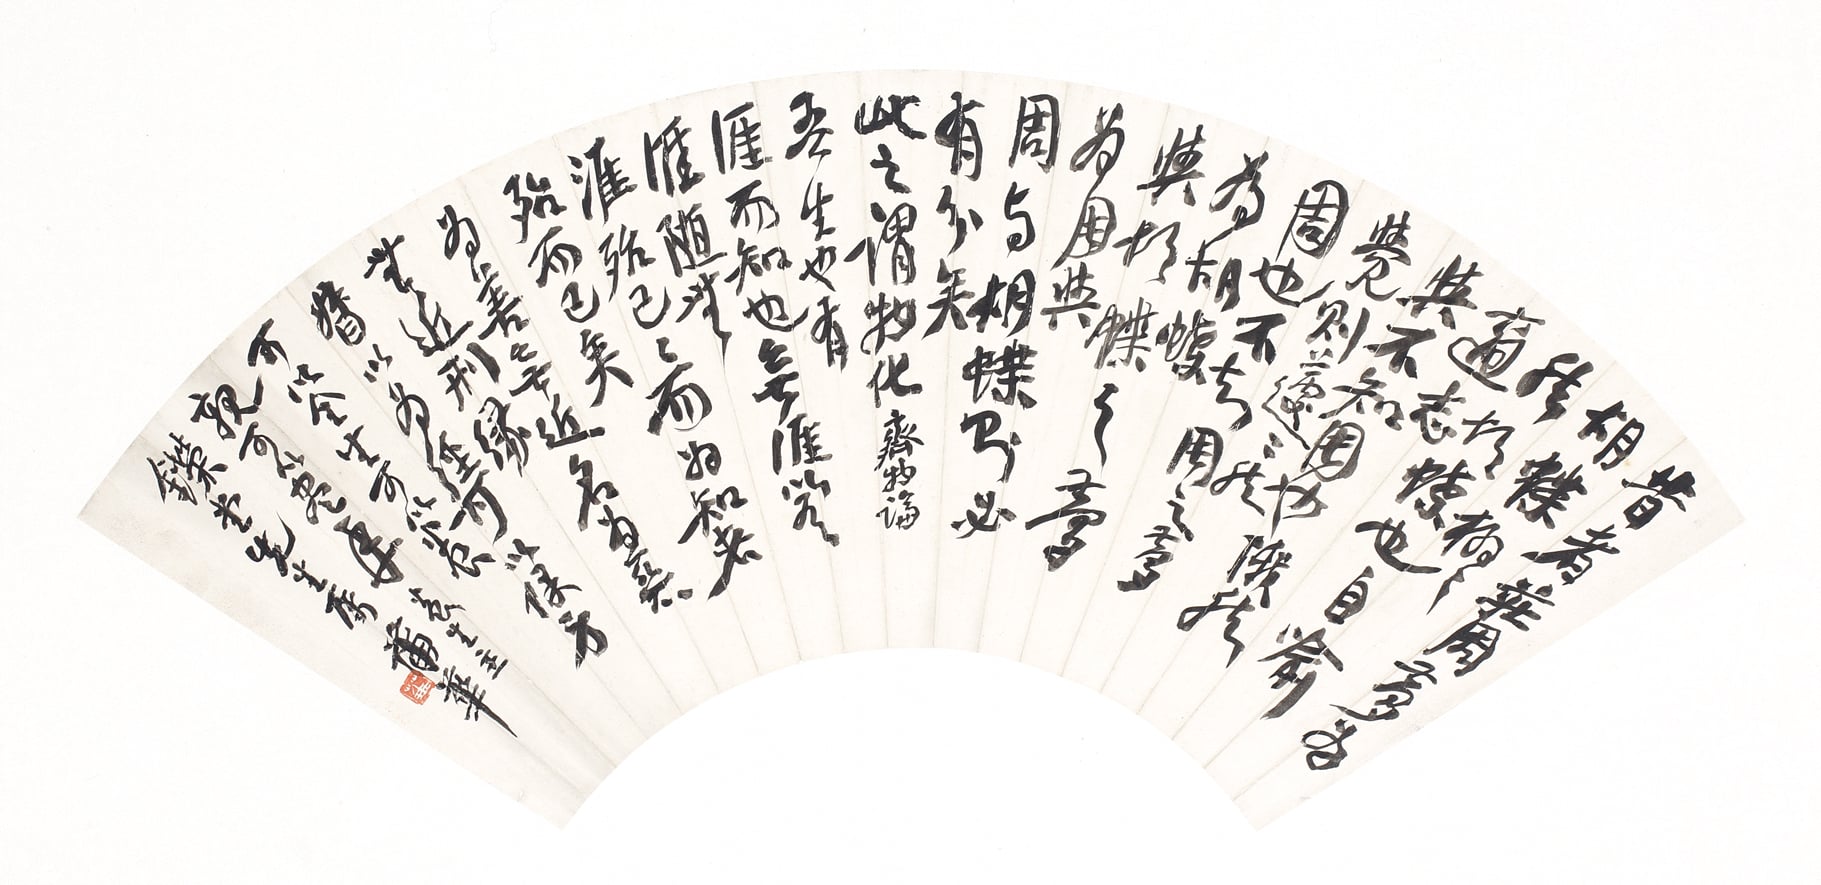 昔者莊周夢為
胡蝶栩〻
然胡蝶也自喻
適志
與不知周也俄然
覺則蘧〻然
周也不知周之夢
為胡蝶
與胡蝶之夢
為周與
周与胡蝶則必
有分矣
此之謂物化 齊物論
吾生也有
涯而知也無涯以有
涯隨無
涯殆已〻而為知者
殆而已矣
為善無近名為惡
無近刑緣
督以為經可以保身
可以全生可以養
親可以盡年 養生主
先生屬 蒲華